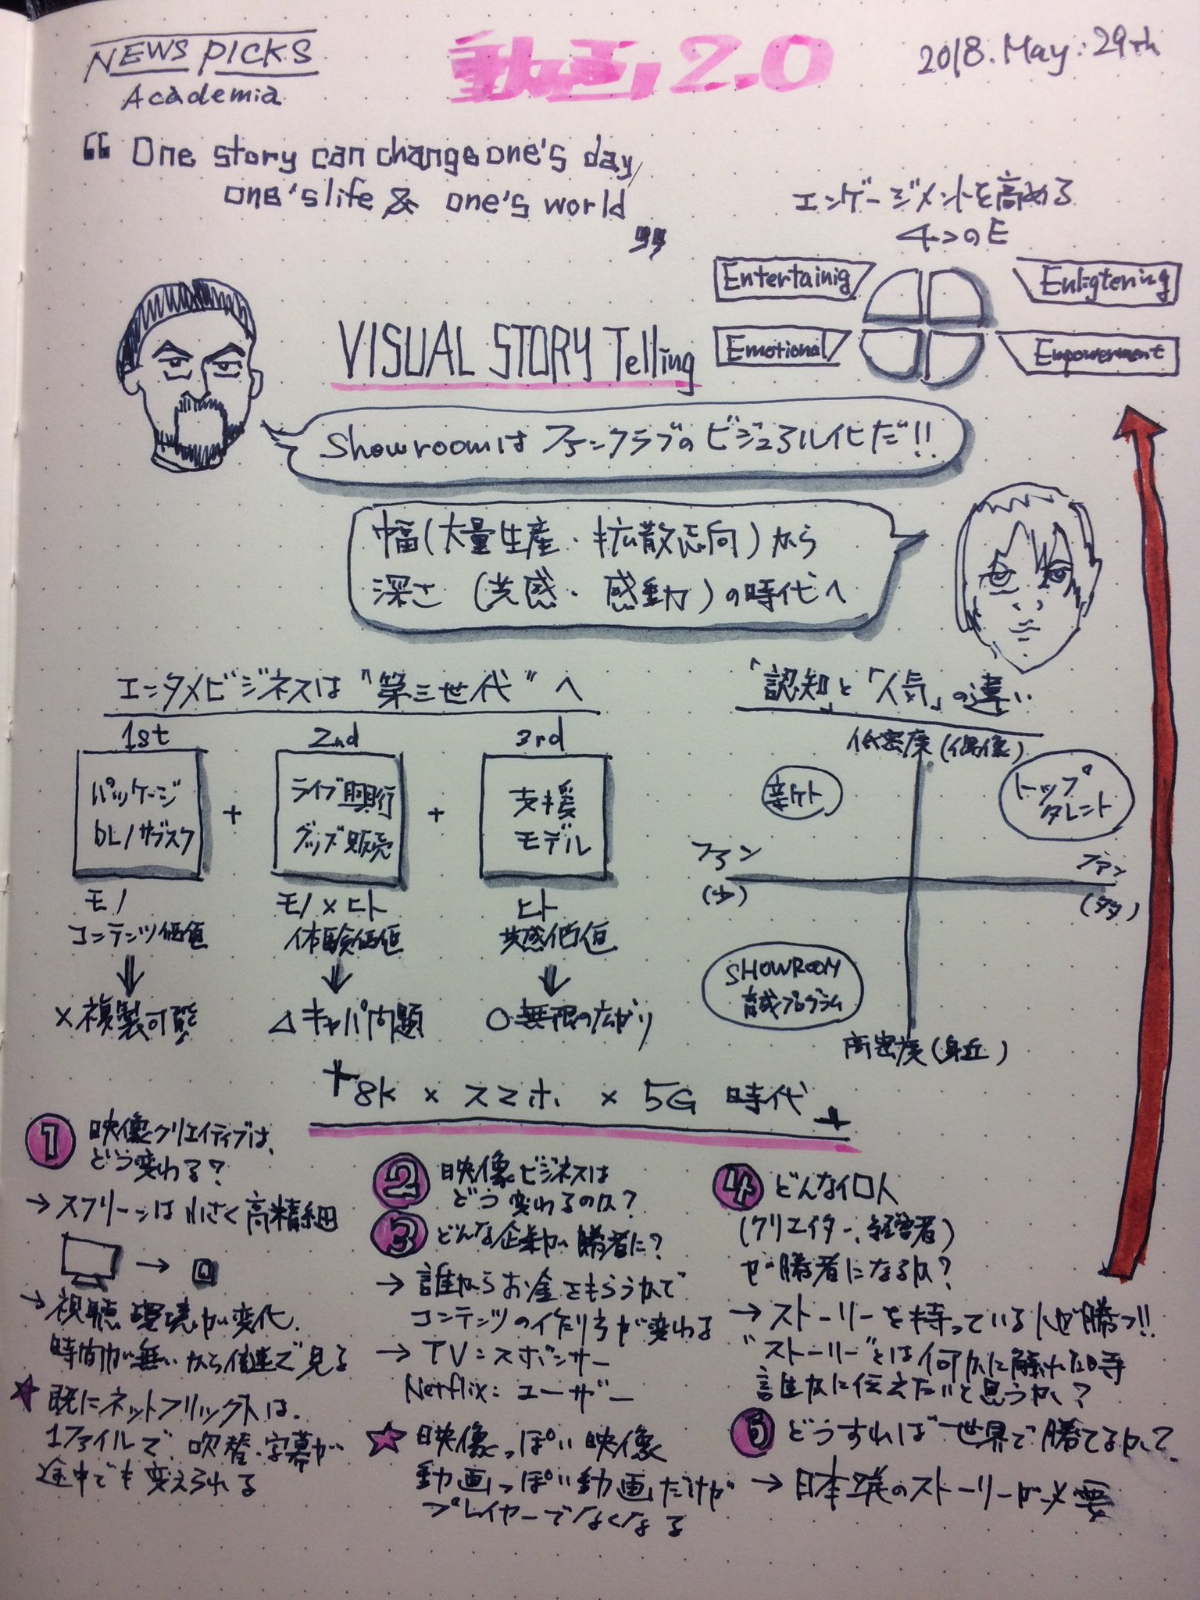 NEWS PICKS
Academia
動画2.0
2018. May. 29th
" One story can change one's day,
one's life & one's world "
エンゲージメントを高める
4つのE
Entertainig
Enligtening
Emotional
Empowerment
VISUAL STORY Telling
Showroomは ファンクラブのビジュアル化だ!!
幅(大量生産・拡散志向)から
深さ(共感・感動)の時代へ
エンタメビジネスは"第三世代"へ
1st
2nd
3rd
パッケージ
DL/サブスク
+
ライブ興行
グッズ販売
+
支援
モデル
モノ
コンテンツ価値
モノ×ヒト
体験価値
ヒト
共感価値
×複製可能
△キャパ問題
○無限の広がり
「認知」と「人気」の違い
低密度(偶像)
トップ
タレント
ファン
(少)
ファン
(多)
SHOWROOM
育成プログラム
高密度(身近)
8K × スマホ × 5G 時代
1 映像クリエイティブは、
どう変わる?
→ スクリーンは小さく高精細
→
→ 視聴環境が変化.
時間が無いから倍速で見る
☆ 既にネットフリックスは.
1ファイルで、吹替・字幕が
途中でも変えられる
2 映像ビジネスは
どう変わるのか?
3 どんな企業が勝者に?
→ 誰からお金をもらうかで
コンテンツの作り方が変わる
→ TV:スポンサー
Netflix:ユーザー
☆ 映像っぽい映像
動画っぽい動画だけが
プレイヤーでなくなる
4 どんな個人
(クリエイター、経営者)
が勝者になるか?
→ ストーリーを持っている人が勝つ!!
"ストーリー"とは何かに触れた時
誰かに伝えたいと思うか?
5 どうすれば世界で勝てるか?
→ 日本発のストーリーが必要